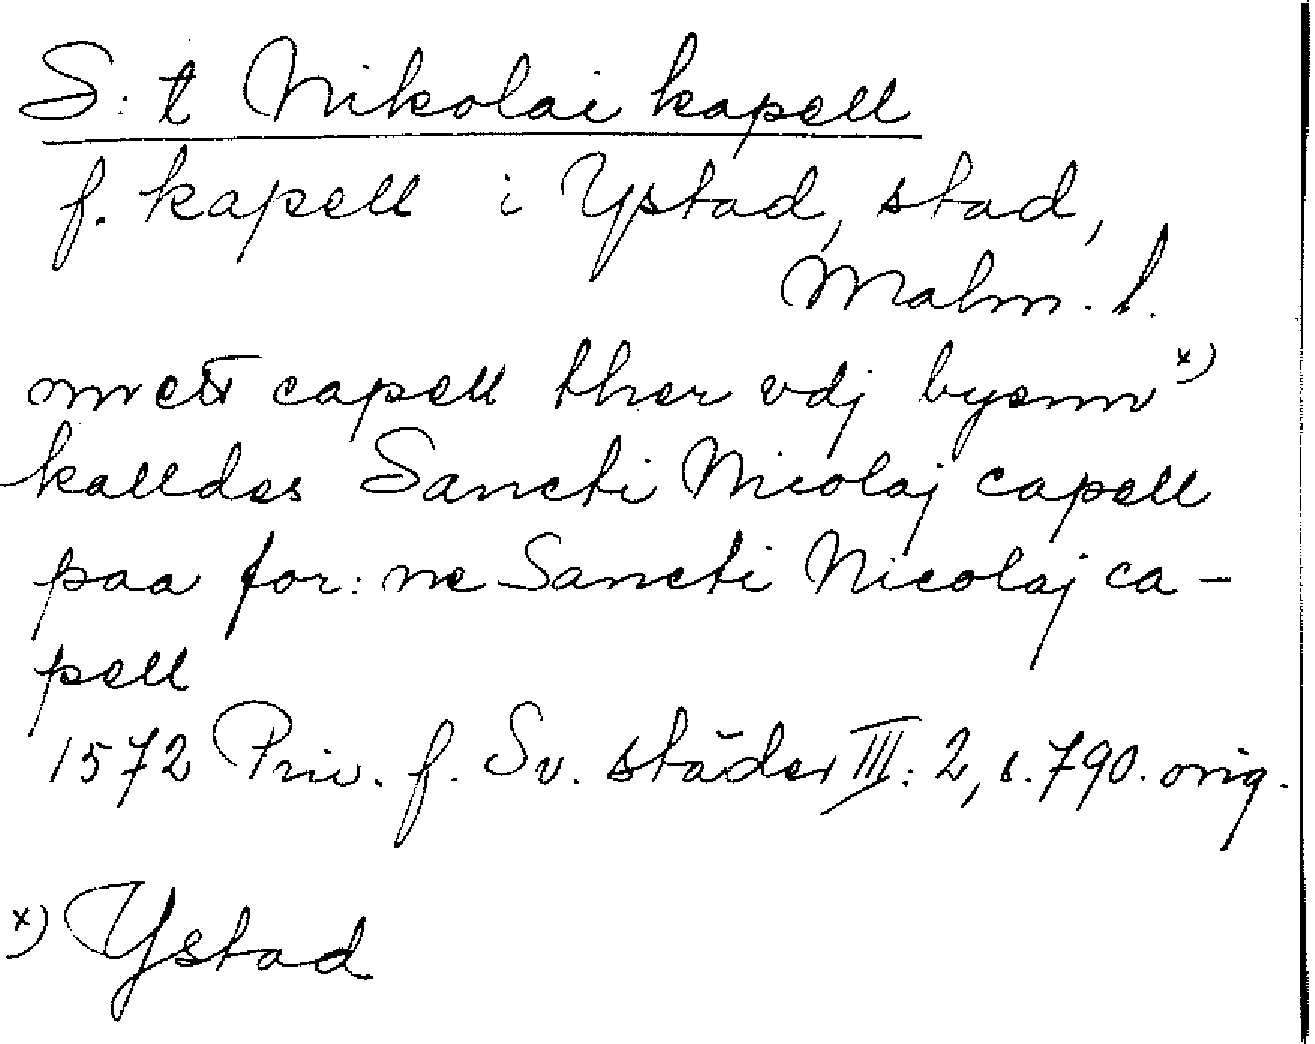 S:t Nikolai kapell
f. kapell i Ystad, stad,
Malm. l.
capell ther vdj byenn x)
kalldes Sancti Nicolaj capell
paa for: ne Sancti Nicolaj ca-
pell
1572 Priv. f. Sv. städer III: 2, s. 790. orig.
x) Ystad